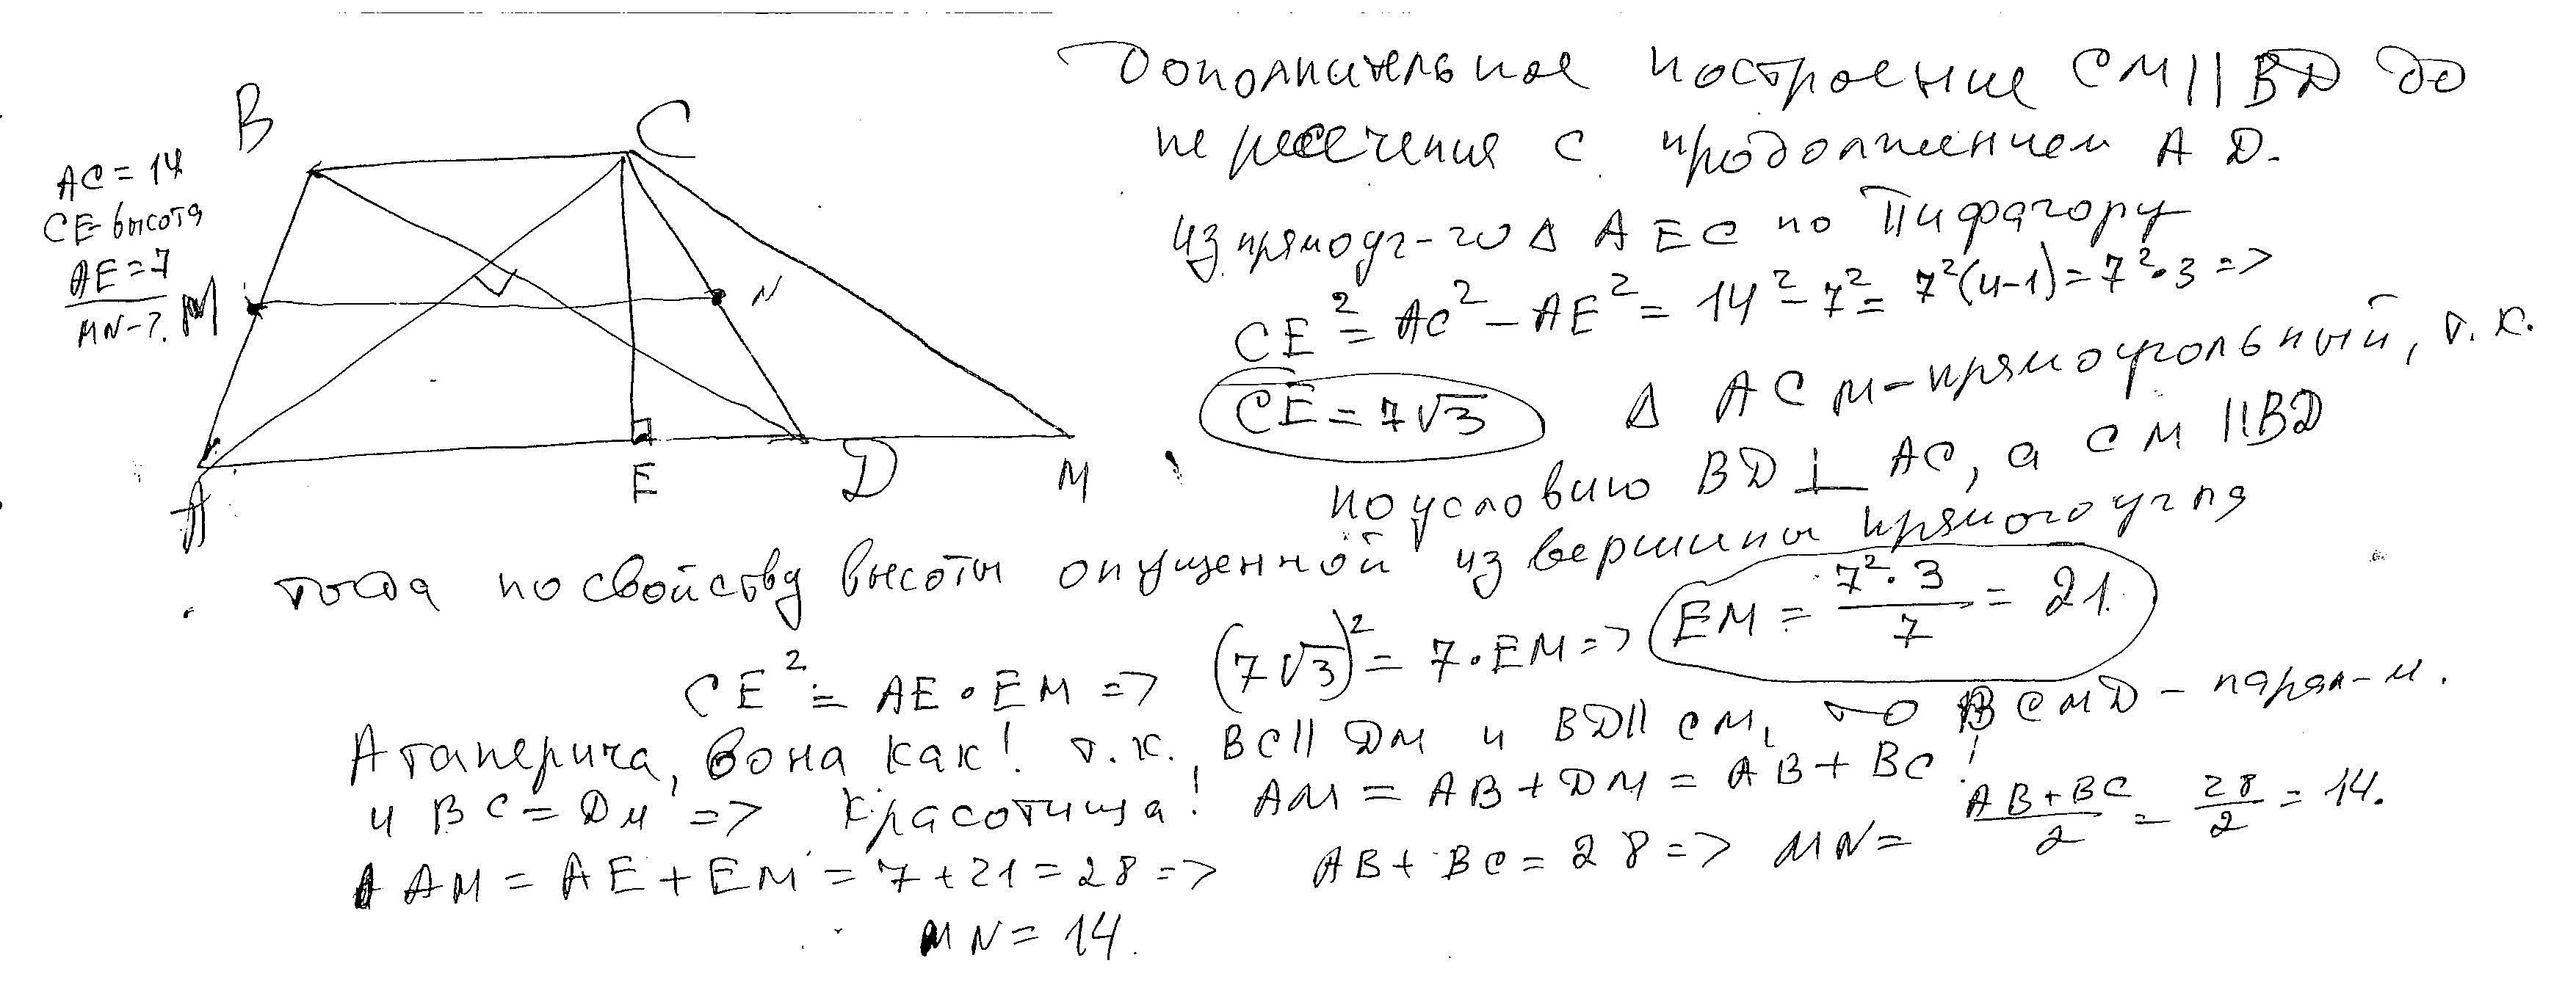 Дополнительное построение CM||BD до
пересечения с продолжением AD.
B
C
AC=14
CE-высота
AE=7
MN-?
M
N
A
E
D
M
из прямоуг-го Δ AEC по Пифагору
CE²=AC²-AE²=14²-7²=7²(4-1)=7²·3=>
CE=7√3
Δ ACM-прямоугольный, т.к.
по условию BD⊥AC, а CM||BD
тогда по свойству высоты опущенной из вершины прямого угля
CE²=AE·EM=> (7√3)²=7·EM=> EM=7²·3/7=21.
Атаперича, вона как! т.к. BC||DM и BD||CM, то BCMD-парал-м.
и BC=DM => Красотища! AM=AB+DM=AB+BC!
AM=AE+EM=7+21=28=> AB+BC=28=> MN=AB+BC/2=28/2=14.
MN=14.